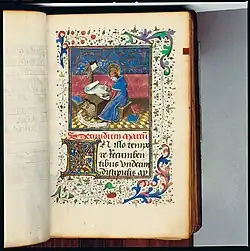 Secundum marcū
IN illo tempo
re recumben
tibus undecim
discipulis ap